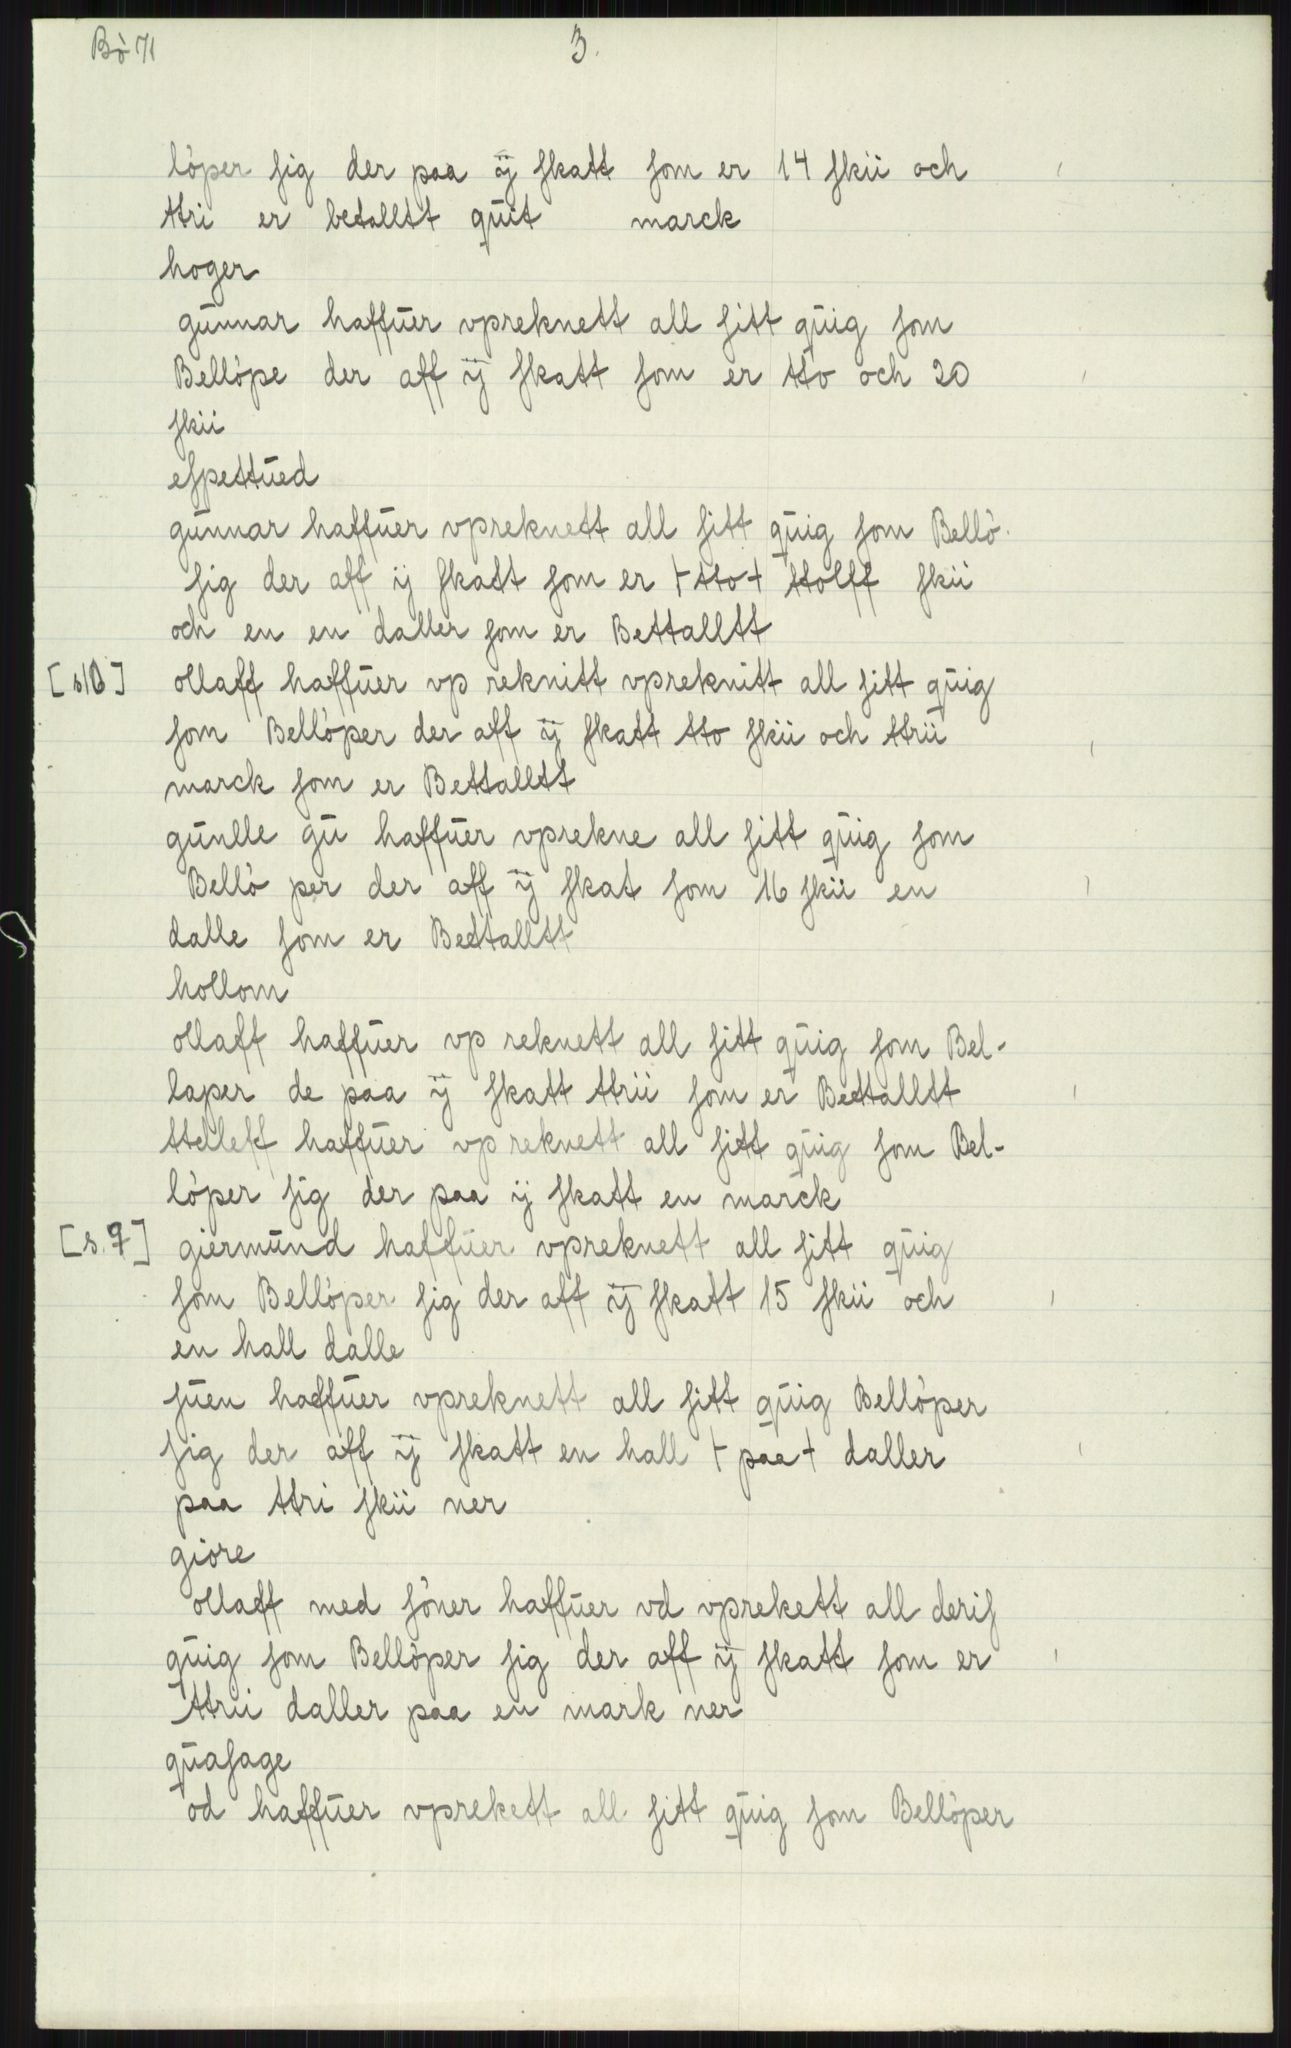 Bö 71
3.
löper sig der paa ij skatt som er 14 skii och
ttri er betalltt quit marck
hoger
gunnar haffuer vpreknett all sitt quig som
Bellöpe der aff ij skatt som er tto och 20
skii
espettued
gunnar haffuer vpreknett all sitt quig som Bellö-
sig der aff ij skatt som er + tto + ttolff skii
och en en daller som er Bettalltt
ollaff haffuer vp reknitt vpreknitt all sitt quig
som Bellöper der aff ij skatt tto skii och ttrii
marck som er Bettalltt
gunlle gu haffuer vprekne all sitt quig som
Bellö per der aff ij skat som 16 skii en
dalle som er Bedtalltt
hollom
ollaff haffuer vp reknett all sitt quig som Bel-
laper de paa ij skatt ttrii som er Bedtalltt
ttelleff haffuer vp reknett all sitt quig som Bel-
löper sig der paa ij skatt en marck
[s. 7] giermund haffuer vpreknett all sitt quig
som Bellöper sig der aff ij skatt 15 skii och
en hall dalle
suen haffuer vpreknett all sitt quig Bellöper
sig der aff ij skatt en hall + paa + daller
paa ttri skii ner
giore
ollaff med söner haffuer vd vprekett all deris
quig som Bellöper sig der aff ij skatt som er
ttrii daller paa en mark ner
quasage
od haffuer vprekett all sitt quig som Bellöper